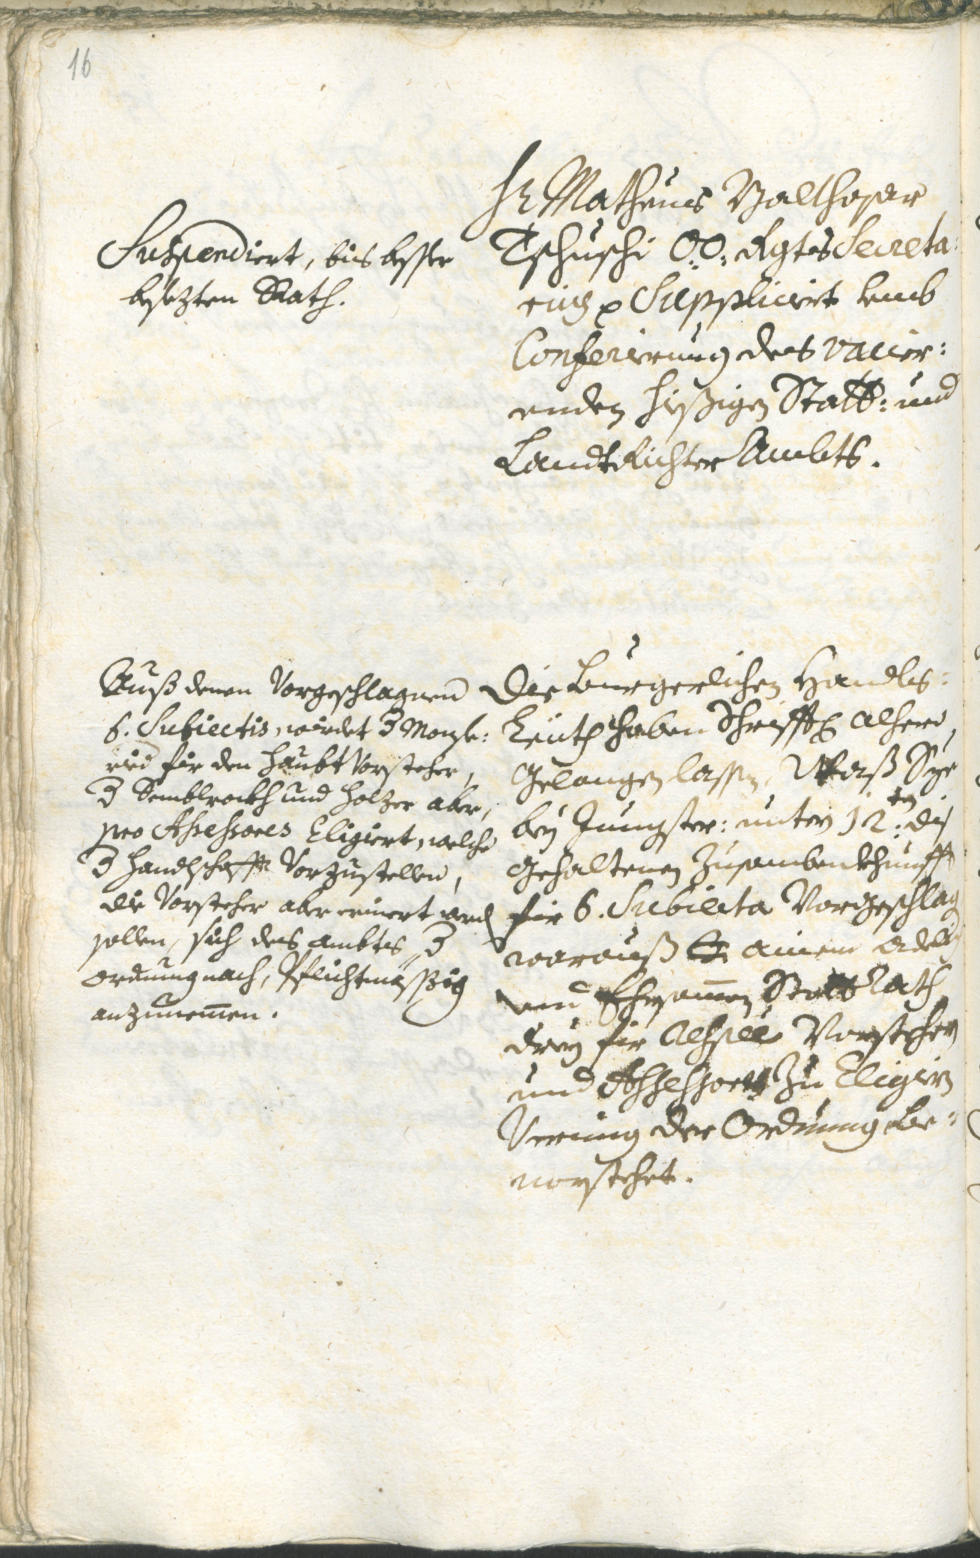 16
Suspendiert, bis besser
besezten Rath.
Hr Matheus Balthasar
Tschuschi OÖ: Rgts Secreta:
rius p Suppliciert umb
Conferierung des vacier:
enden hießigen Statt: und
Landt Richter Ambts.
Auß denen Vorgeschlagnen
6. Subiectis, würdet H
für den Haubt Vorsteher,
H und Holzer aber,
pro Assessores Eligiert, welche
Handlschafft Vorzustellen,
die Vorsteher aber erinert werden
sollen, sich des ambts
ordnung nach, Pflichtmässig
anzunemmen.
Die Burgerlichen Handls:
Leuth haben Schrifftl: alhero
Gelangen lassen, Waß Sye
bey Jungster: unter 12:ten dis
Gehaltenen Zusambenkhunfft
für 6. Subiecta Vorgeschlagen
woraus ainem
und Ehrsammen Statt Rath
drey für Vorsteher
und Assessores zu Eligiern
der Ordnung be:
vorstehet.